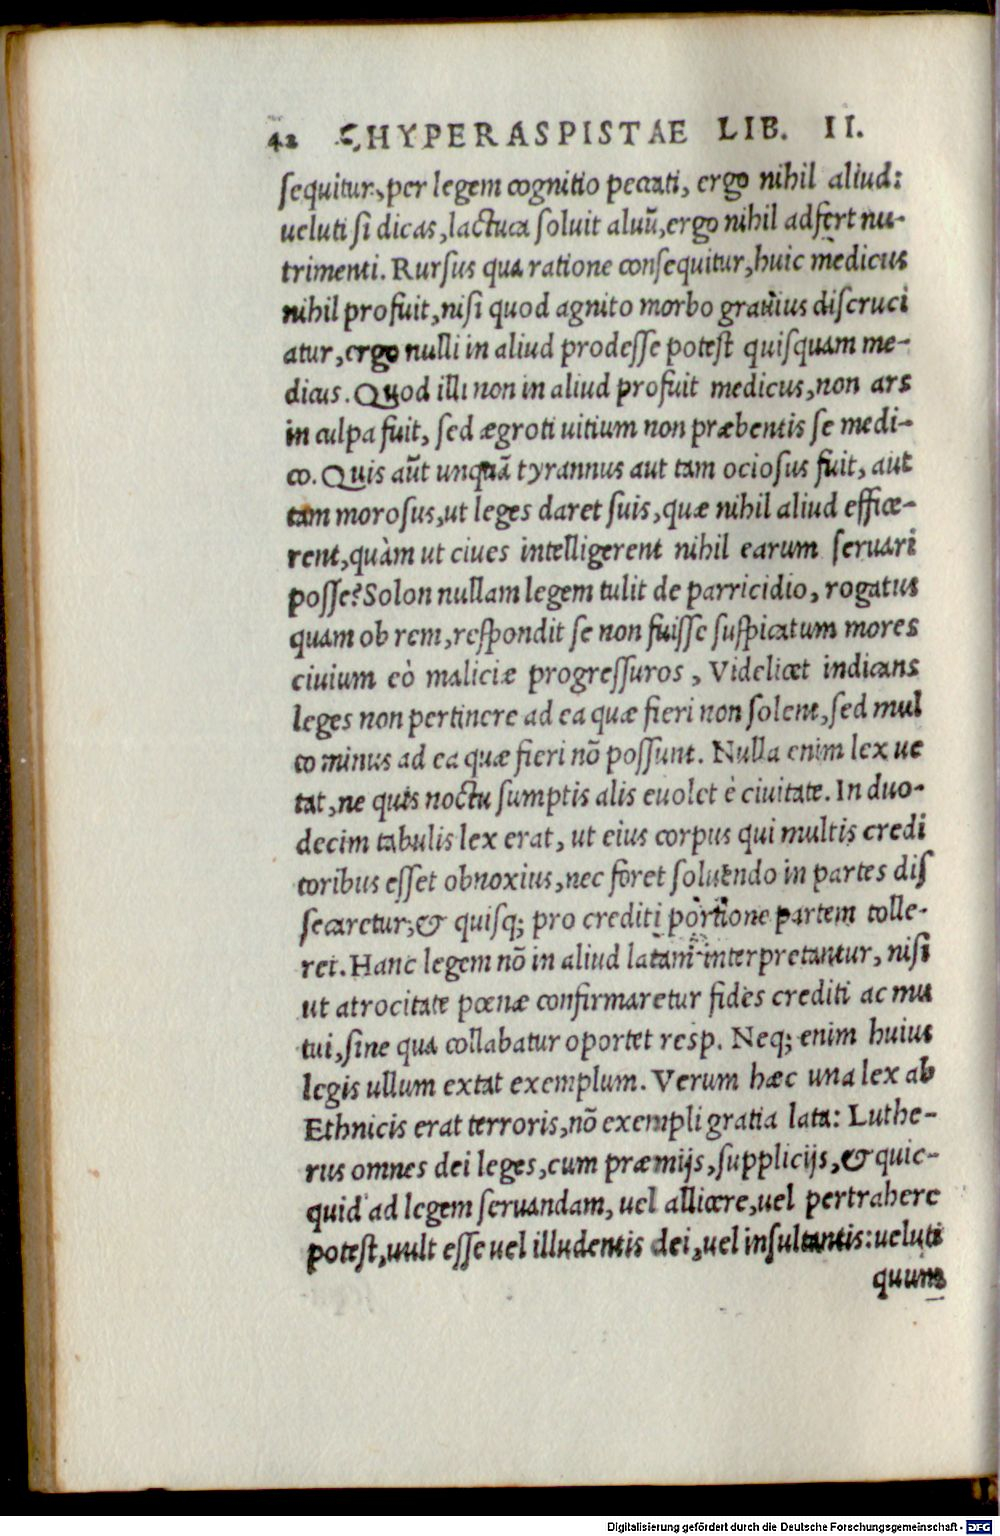 42 HYPERASPISTAE LIB. II.
sequitur, per legem cognitio peccati, ergo nihil aliud:
ueluti si dicas, lactuca soluit aluū, ergo nihil adfert nu-
trimenti. Rursus qua ratione consequitur, huic medicus
nihil profuit, nisi quod agnito morbo grauius discruci
atur, ergo nulli in aliud prodesse potest quisquam me-
dicus. Quod illi non in aliud profuit medicus, non ars
in culpa fuit, sed ægroti uitium non præbentis se medi-
co. Quis aūt unquā tyrannus aut tam ociosus fuit, aut
tam morosus, ut leges daret suis, quæ nihil aliud effice-
rent, quàm ut ciues intelligerent nihil earum seruari
posse? Solon nullam legem tulit de parricidio, rogatus
quam ob rem, respondit se non fuisse suspicatum mores
ciuium eò maliciæ progressuros, Videlicet indicans
leges non pertinere ad ea quæ fieri non solent, sed mul
to minus ad ea quæ fieri nō possunt. Nulla enim lex ue
tat, ne quis noctu sumptis alis euolet è ciuitate. In duo-
decim tabulis lex erat, ut eius corpus qui multis credi
toribus esset obnoxius, nec foret soluendo in partes dis
secaretur, & quisq; pro crediti portione partem tolle-
ret. Hanc legem nō in aliud latam interpretantur, nisi
ut atrocitate pœnæ confirmaretur fides crediti ac mu
tui, sine qua collabatur oportet resp. Neq; enim huius
legis ullum extat exemplum. Verum hæc una lex ab
Ethnicis erat terroris, nō exempli gratia lata: Luthe-
rus omnes dei leges, cum præmijs, supplicijs, & quic-
quid ad legem seruandam, uel allicere, uel pertrahere
potest, uult esse uel illudentis dei, uel insultantis: ueluti
quum
Digitalisierung gefördert durch die Deutsche Forschungsgemeinschaft - DFG